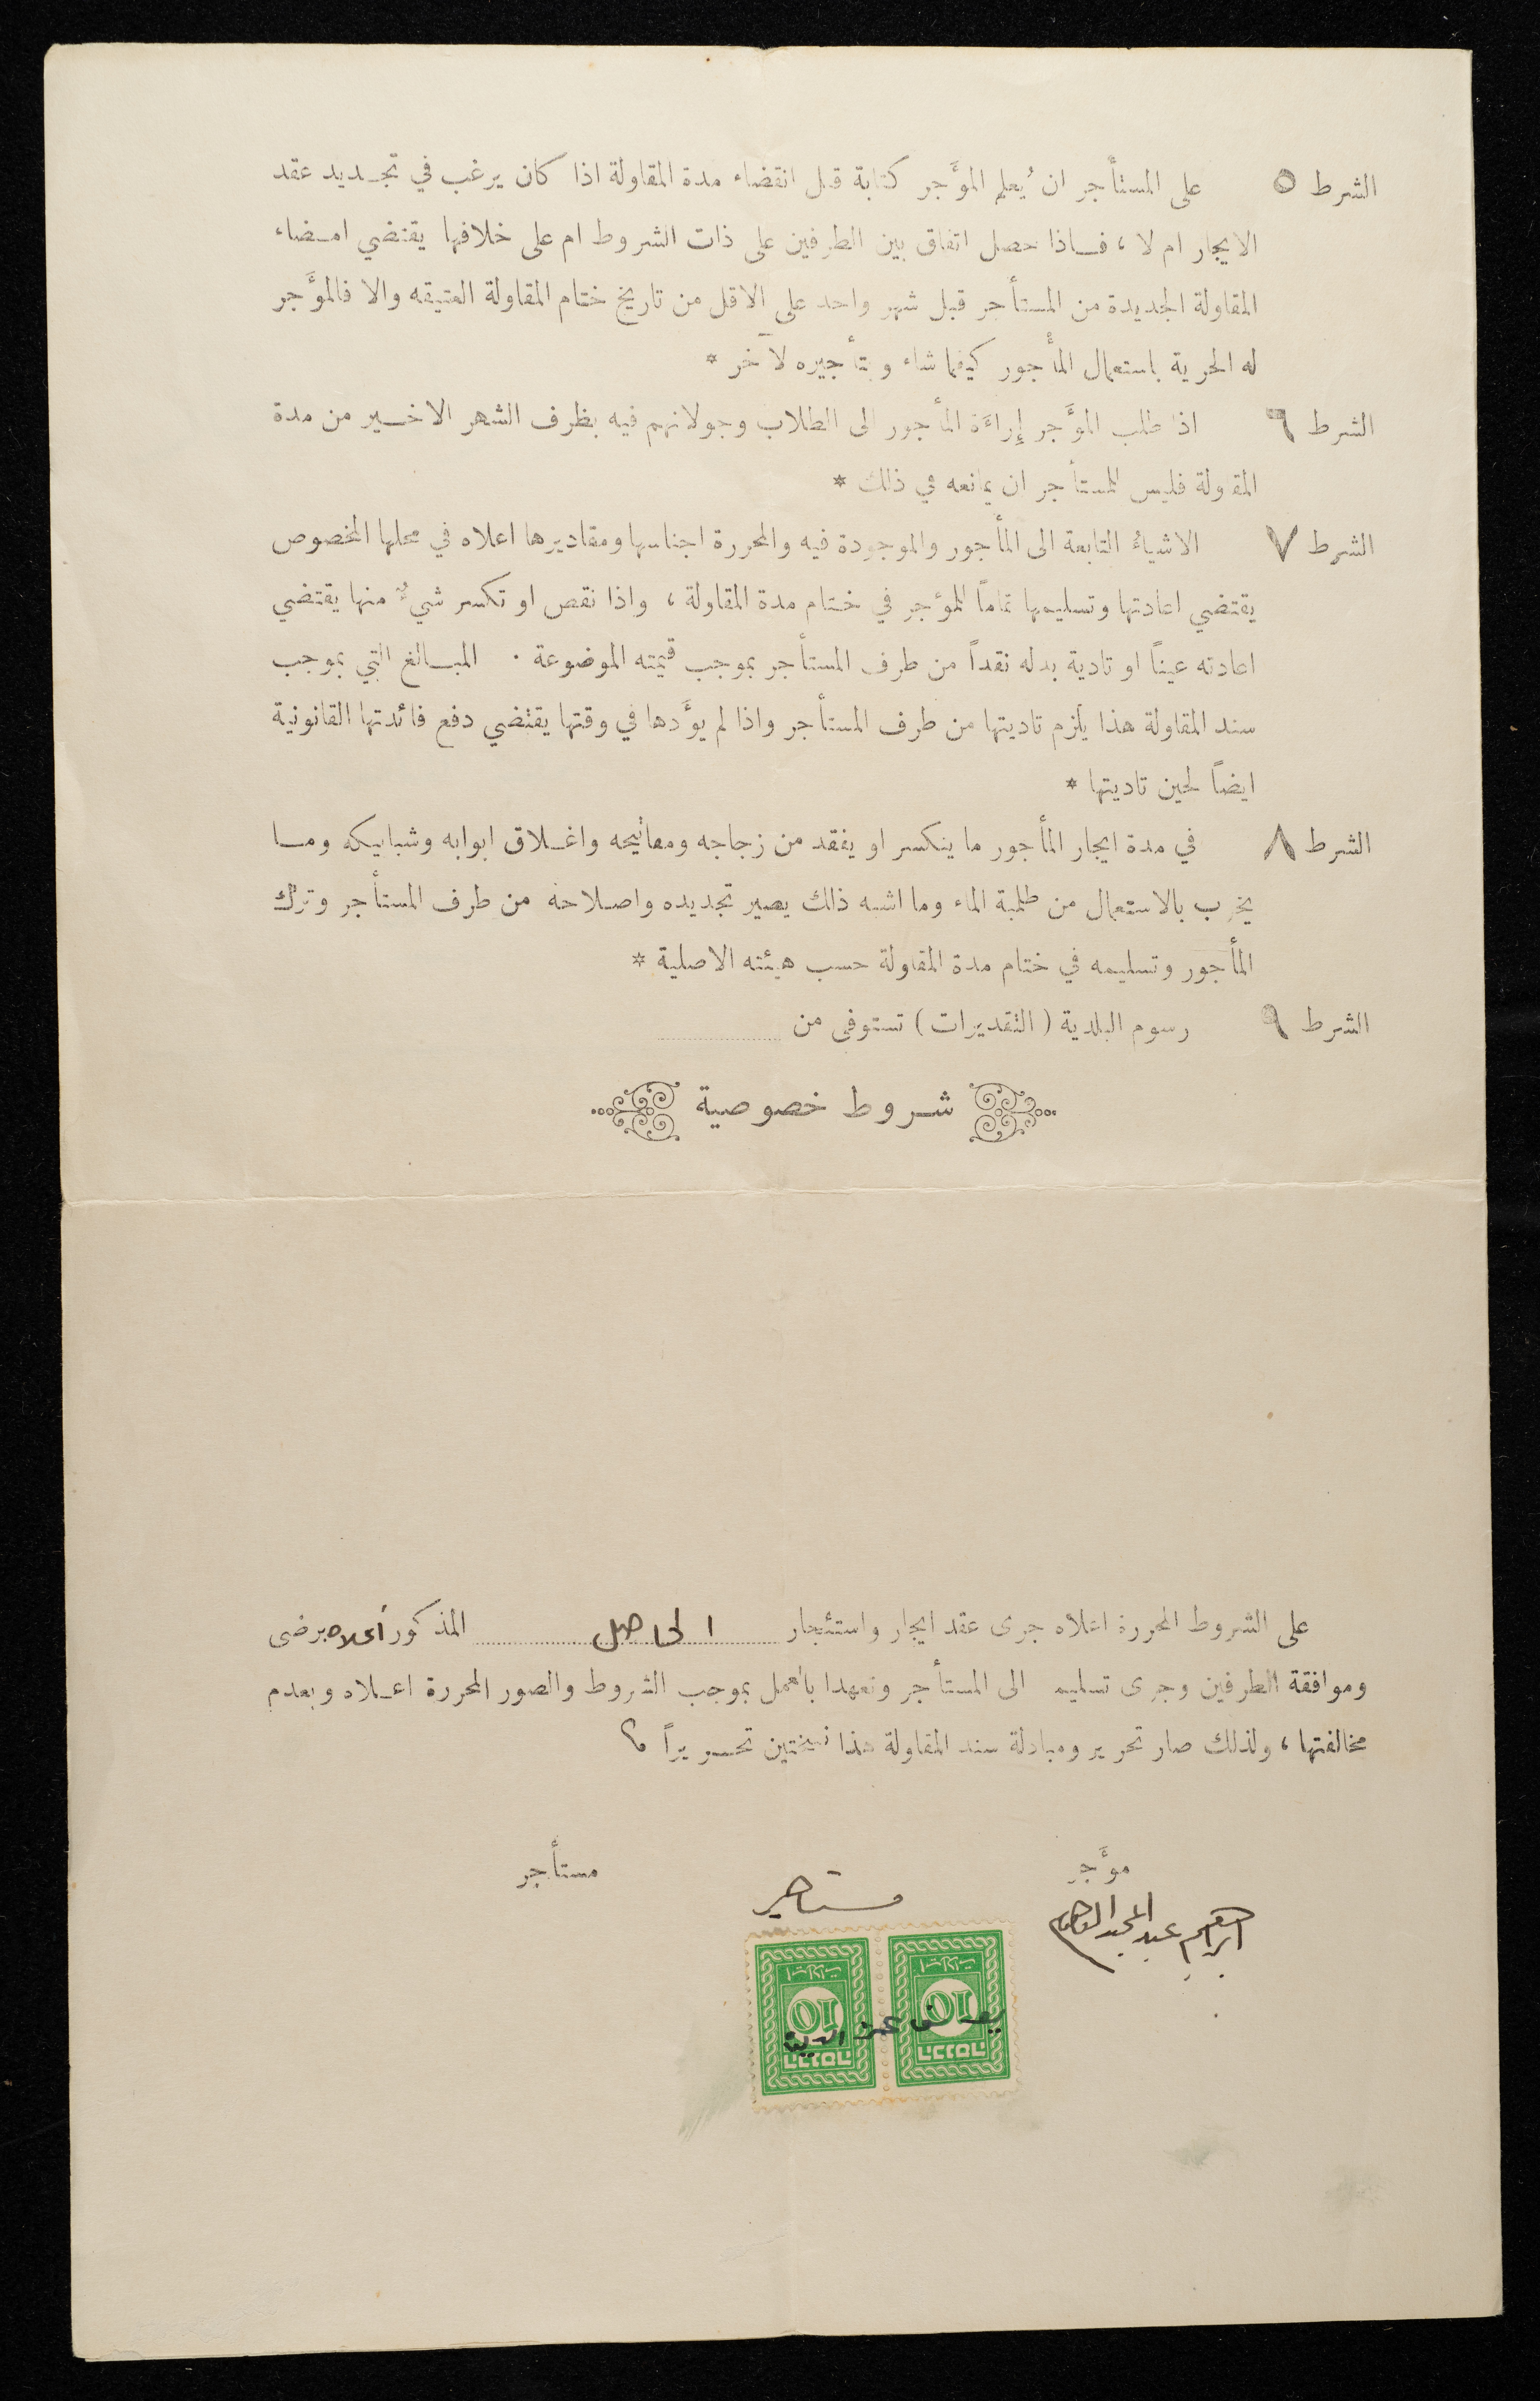 الشرط ٥ على المستأجر ان يُعلم المؤَجر كتابة قبل انقضاء مدة المقاولة اذا كان يرغب في تجديد عقد
الايجار ام لا ، فاذا حصل اتفاق بين الطرفين على ذات الشروط ام على خلافها يقتضي امضاء
المقاولة الجديدة من المستأجر قبل شهر واحد على الاقل من تاريخ ختام المقاولة العتيقه والا فالمؤَجر
له الحرية باستعمال المأجور كيفما شاء وبتأجيره لآخر *
الشرط ٦ اذا طلب المؤَجر إراءَة المأجور الى الطلاب وجولانهم فيه بظرف الشهر الاخير من مدة
المقاولة فليس للمستأجر ان يمانعه في ذلك *
الشرط ٧ الاشياءُ التابعة الى المأجور والموجودة فيه والمحررة اجناسها ومقاديرها اعلاه في محلها المخصوص
يقتضي اعادتها وتسليمها تماماً للمؤجر في ختام مدة المقاولة ، واذا نقص او تكسر شيءٌ منها يقتضي
اعادته عيناً او تادية بدله نقداً من طرف المستأجر بموجب قيمته الموضوعة . المبالغ التي بموجب
سند المقاولة هذا يلزم تاديتها من طرف المستأجر واذا لم يؤَدها في وقتها يقتضي دفع فائدتها القانونية
ايضاً لحين تاديتها *
الشرط ٨ في مدة ايجار المأجور ما ينكسر او يفقد من زجاجه ومفاتيحه واغلاق ابوابه وشبابيكه وما
يخرب بالاستعمال من طلمبة الماء وما اشبه ذلك يصير تجديده واصلاحه من طرف المستأجر وترك
المأجور وتسليمه في ختام مدة المقاولة حسب هيئته الاصلية *
الشرط ٩ رسوم البلدية ( التقديرات ) تستوفى من
شروط خصوصية
على الشروط المحررة اعلاه جرى عقد ايجار واستئجار الحاصل المذكور أعلاه برضى
وموافقة الطرفين وجرى تسليمه الى المستأجر وتعهدا بالعمل بموجب الشروط والصور المحررة اعلاه وبعدم
مخالفتها ، ولذلك صار تحرير ومبادلة سند المقاولة هذا نسختين تحريراً
مؤَجر مستأجر
مستأجر
ابراهيم عبد المجيد
ايرادات ايرادات
10 10
הכנסה הכנסה